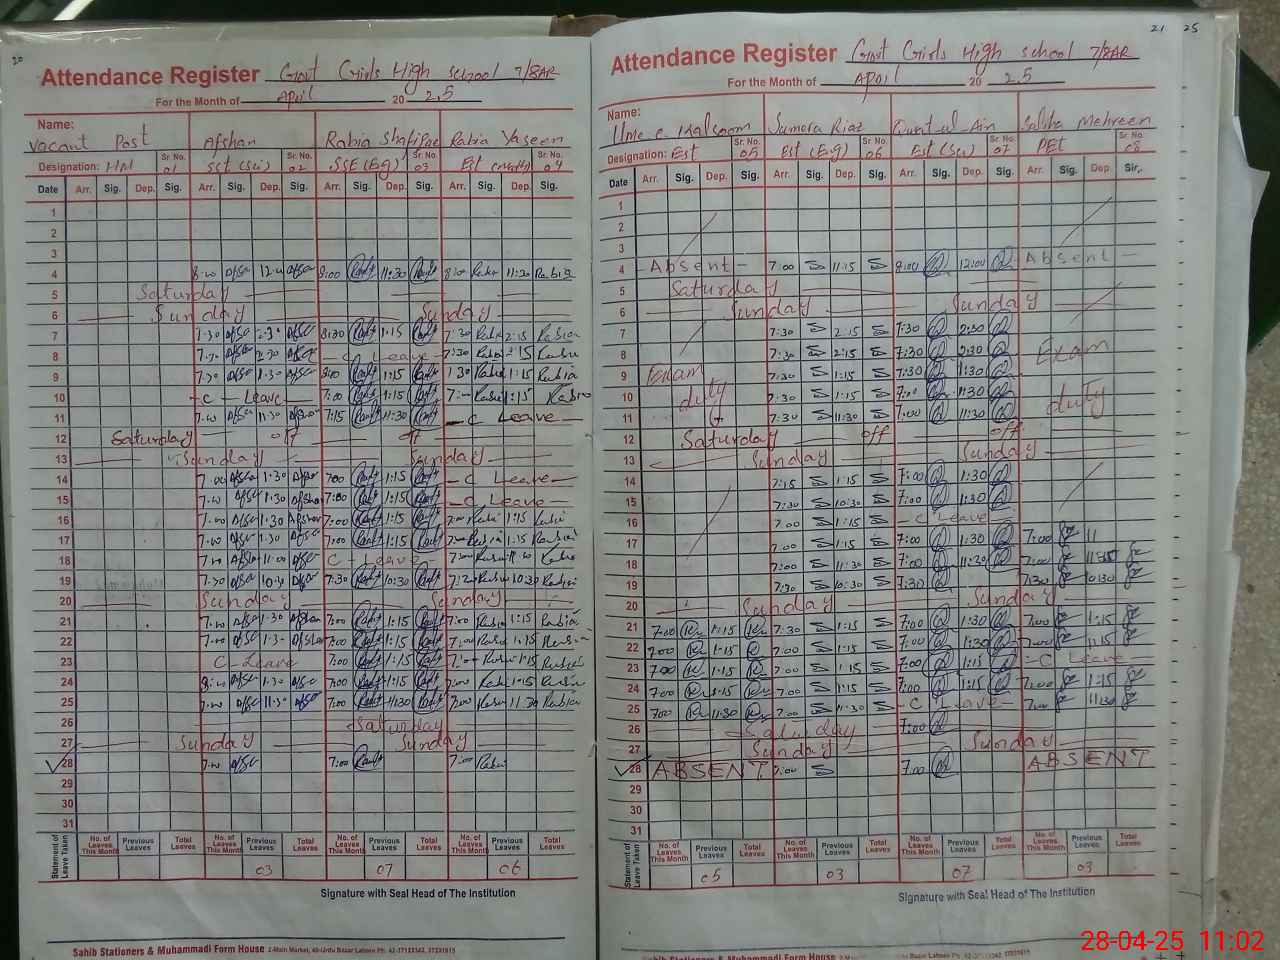 20
Attendance Register Govt Girls High school 7/8AR
For the Month of April 20 25
Name: Vacant Post Afshan Rabia Shafique Rabia Yaseen
Designation: H/M Sr. No. 01 SST (Sci) Sr. No. 02 SSE (Eng) Sr. No. 03 Est Sr. No. 04
Date Arr. Sig. Dep. Arr. Sig. Dep. Sig. Arr. Sig. Dep. Sig. Arr. Sig. Dep. Sig.
1
2
3
4 8:00 Afsa 12:00 Afsa 8:00 11:30 8:00 Rabi 11:30 Rabia
5 Saturday
6 Sunday Sunday
7 7:30 Afsa 2:30 Afsa 8:30 1:15 7:30 Rabi 2:15 Rabia
8 7:30 Afsa 2:30 Afsa C Leave 7:30 Rabi 2:15 Rabia
9 7:30 Afsa 1:30 Afsa 8:00 1:15 7:30 Rabi 1:15 Rabia
10 C - Leave - 7:00 1:15 7:00 Rabi 1:15 Rabia
11 7:00 Afsa 11:30 Afshan 7:15 11:30 - C Leave -
12 Saturday off off
13 Sunday Sunday
14 7:00 Afsha 1:30 Afsha 7:00 1:15 - C Leave -
15 7:00 Afsa 1:30 Afshan 7:00 1:15 - C Leave -
16 7:00 Afsa 1:30 Afshan 7:00 1:15 7:00 Rabi 1:15 Rabia
17 7:00 Afsa 1:30 Afsa 7:00 1:15 7:00 Rabia 1:15 Rabia
18 7:00 Afsha 11:00 Afsa C - Leave 7:00 Rabia Rabia
19 7:30 Afsa 10:30 Afsa 7:30 10:30 Rabi 10:30 Rabia
20 Sunday Sunday
21 7:00 Afsa 1:30 Afshan 7:00 1:15 7:00 Rabi 1:15 Rabia
22 7:00 Afsa 1:30 Afshan 7:00 1:15 7:00 Rabi 1:15 Rabia
23 C - Leave 7:00 1:15 7:00 Rabi 1:15 Rabia
24 8:00 Afsa 1:30 Afsa 7:00 1:15 7:00 Rabi 1:15 Rabia
25 7:00 Afsa 11:30 Afsa 7:00 11:30 7:00 Rabi 11:30 Rabia
26 Saturday
27 Sunday Sunday
28 7:00 Afsa 7:00 7:00 Rabi
29
30
31
Statement of Leave Taken No. of Leaves This Month Previous Leaves Total Leaves No. of Leaves This Month Previous Leaves Total Leaves No. of Leaves This Month Previous Leaves Total Leaves No. of Leaves This Month Previous Leaves Total Leaves
03 07 06
Signature with Seal Head of The Institution
Sahib Stationers & Muhammadi Form House 2-Main Market, 40-Urdu Bazar Lahore Ph: 42-37133342, 37231615
21 25
Attendance Register Govt Girls High school 7/8AR
For the Month of April 20 25
Name: Ume e Kalsoom Sumera Riaz Qurat-ul-Ain Saliha Mehreen
Designation: Est Sr. No. 05 Est (Eng) Sr. No. 06 Est (Sci) Sr. No. 07 PEt Sr. No. 08
Date Arr. Sig. Dep. Sig. Arr. Sig. Dep. Sig. Arr. Sig. Dep. Sig. Arr. Sig. Dep. Sig.
1
2
3
4 - Absent - 7:00 11:15 8:00 12:00 Absent -
5 Saturday
6 Sunday Sunday
7 7:30 2:15 7:30 2:30
8 7:30 2:15 7:30 2:30 Exam
9 Exam 7:30 1:15 7:30 1:30
10 duty 7:30 1:15 7:00 1:30 duty
11 7:30 11:30 7:00 11:30
12 Saturday off off
13 Sunday Sunday
14 7:15 1:15 7:00 1:30
15 7:30 10:30 7:00 1:30
16 7:00 1:15 - C Leave -
17 7:00 1:15 7:00 1:30 7:00 11
18 7:00 11:30 7:00 11:30 7:00 11:15
19 7:30 10:30 7:30 7:30 10:30
20 Sunday Sunday
21 7:00 1:15 7:30 1:15 7:00 1:30 7:00 1:15
22 7:00 1:15 7:00 1:15 7:00 1:30 7:00 1:15
23 7:00 1:15 7:00 1:15 7:00 1:15 - C Leave -
24 7:00 1:15 7:00 1:15 7:00 1:15 7:00 1:15
25 7:00 11:30 7:00 11:30 - C Leave - 7:00 11:30
26 Saturday 7:00
27 Sunday Sunday
28 ABSENT 7:00 7:00 ABSENT
29
30
31
Statement of Leave Taken No. of Leaves This Month Previous Leaves Total Leaves No. of Leaves This Month Previous Leaves Total Leaves No. of Leaves This Month Previous Leaves Total Leaves No. of Leaves This Month Previous Leaves Total Leaves
05 03 07 03
Signature with Seal Head of The Institution
Sahib Stationers & Muhammadi Form House
28-04-25 11:02